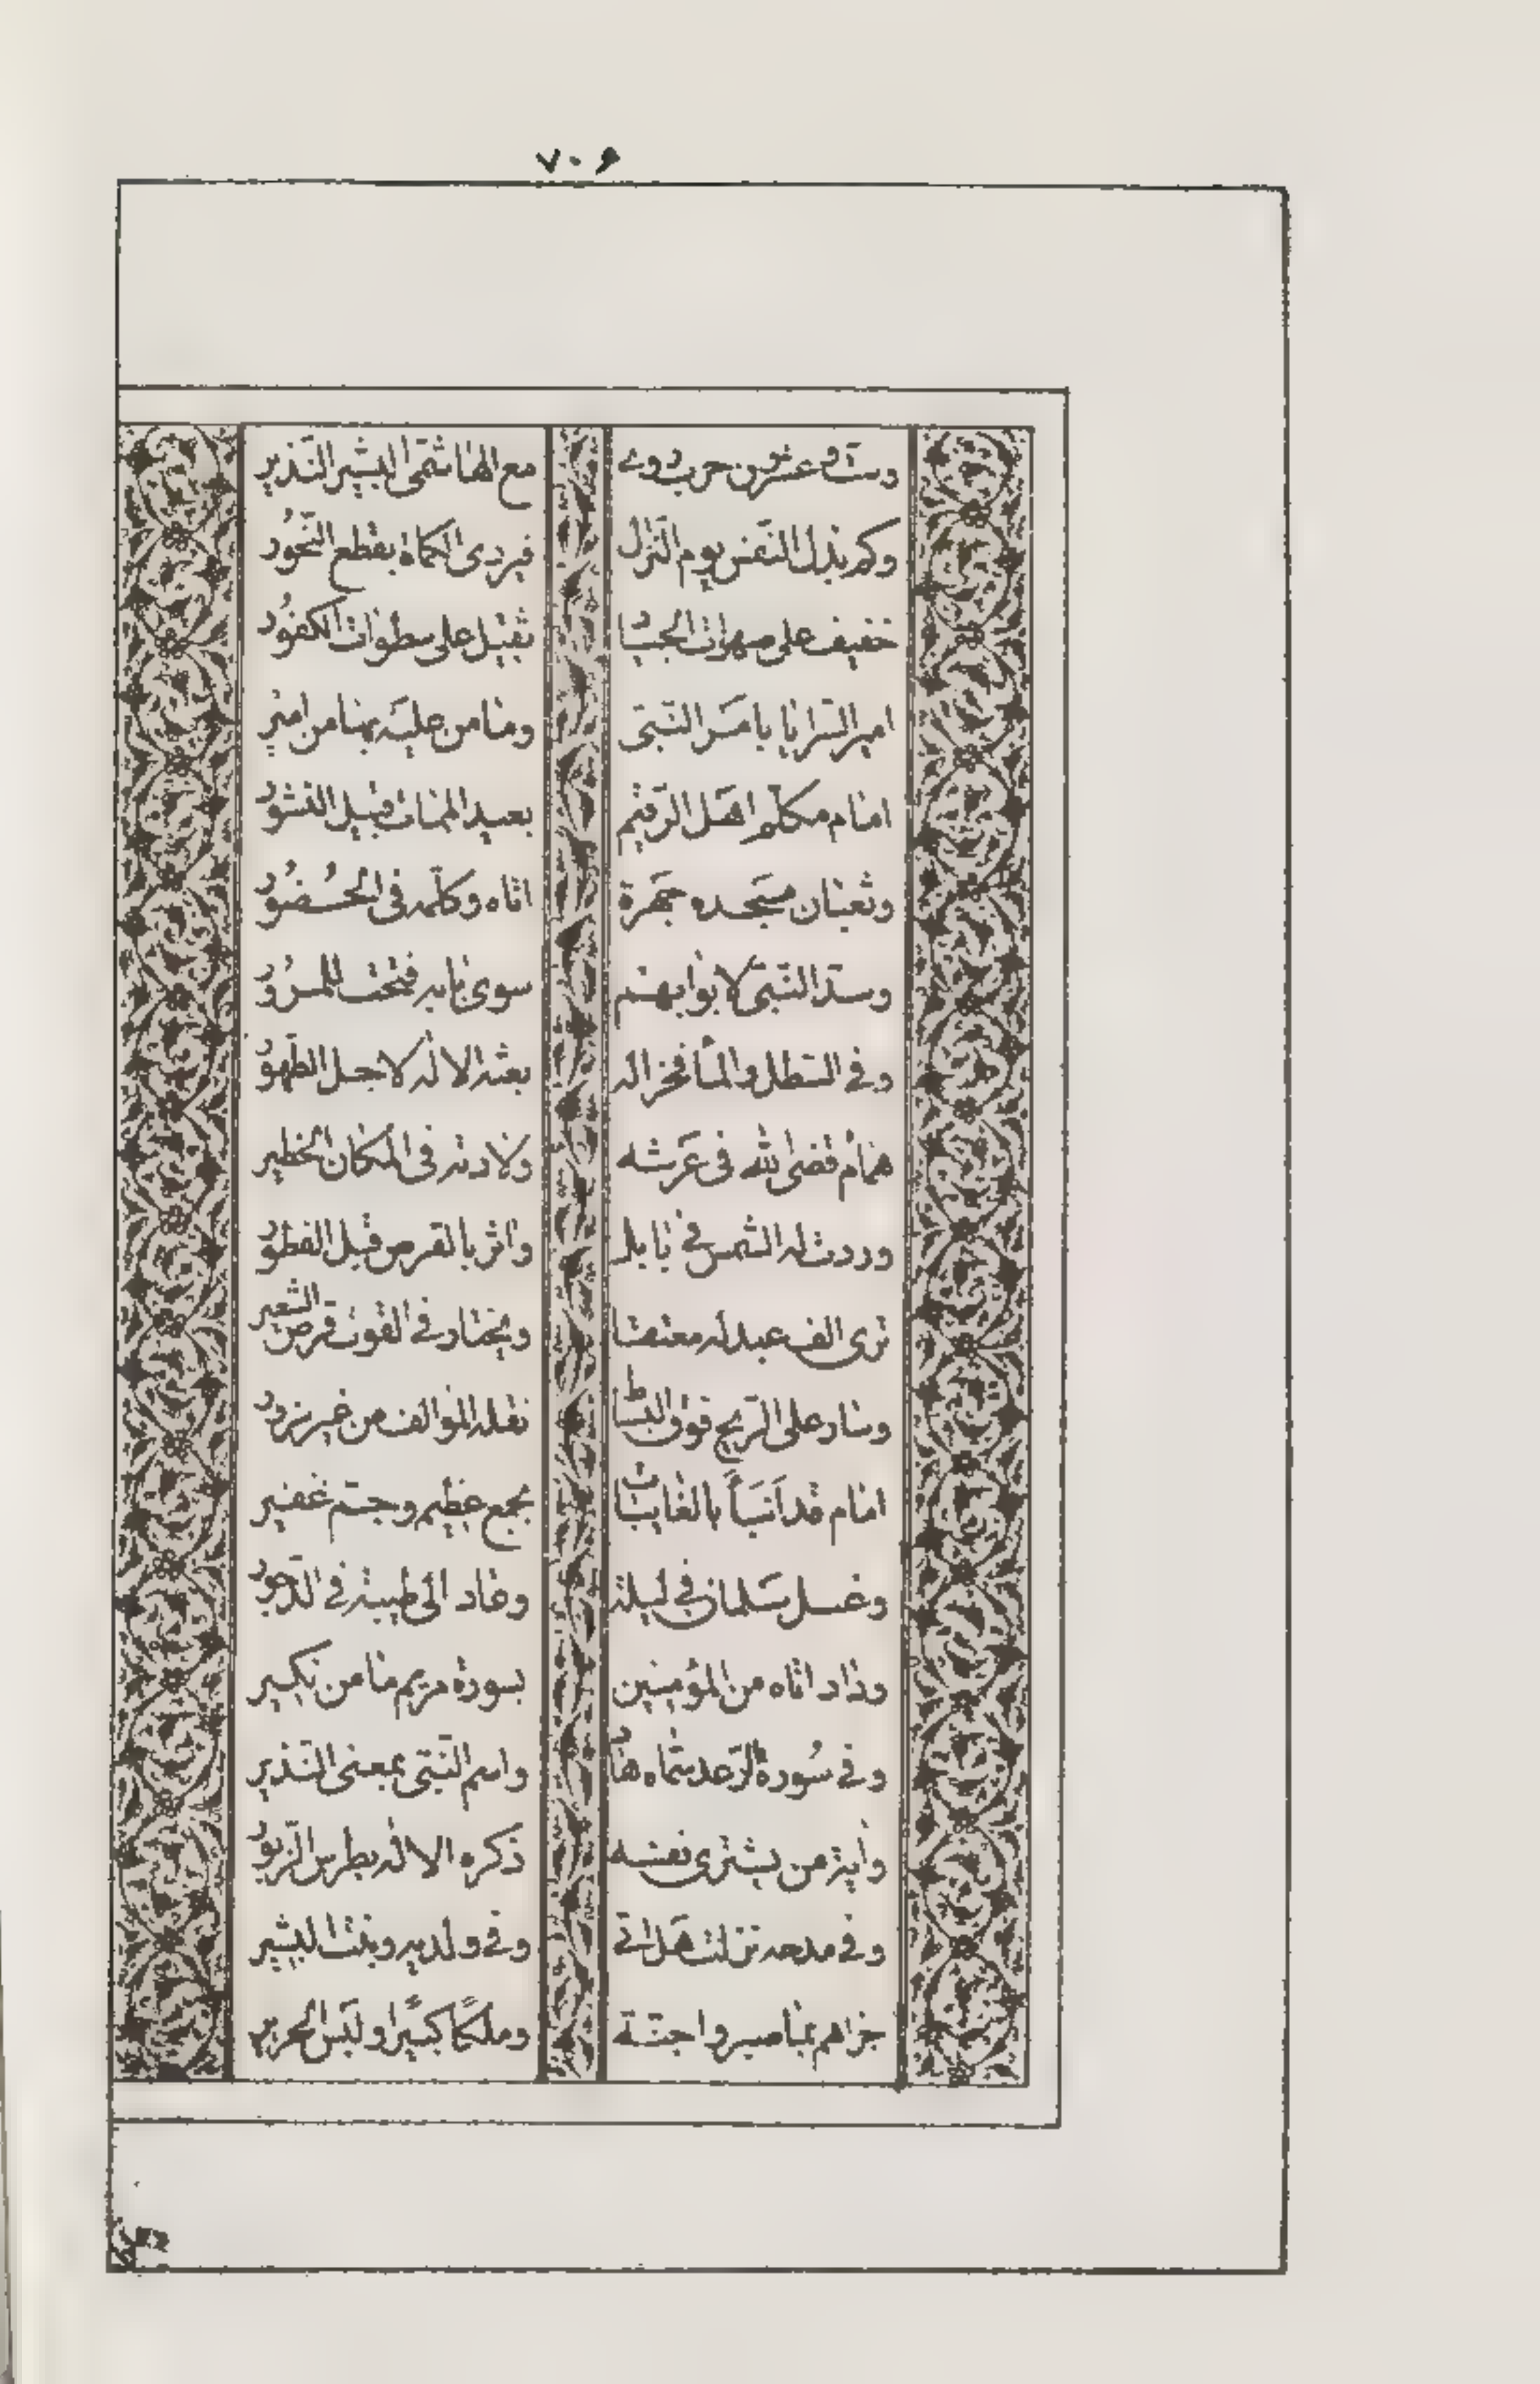 ٧٠۶
وستّ وعشرون حرب روى مع الهاشمى البشير النّذير
وكم بذل النّفس يوم النّزال فيردى الكماة بقطع النّحور
خفيف على صهوات الجياد ثقيل على سطوات الكفور
امير السّرايا بامر النّبىّ وما من عليه بها من امير
امام مكلّم اهل الرّقيم بعيد الممات قبيل النشور
وثعبان مسجده جهرة اتاه وكلّمه فى الحضور
وسدّ النّبىّ لابوابهم سوى بابه فتحت للمرور
وفى السّطل والماء فخر له بعثه الاله لاجل الطّهور
همام قضى الله فى عرشه ولادته فى المكان الخطير
وردت له الشّمس فى بابل واثر بالقرص قبل الفطور
ترى الف عبد له معتقا ويختار فى القوت قرص الشّعير
وسار على الرّيح فوق البساط
امام قد انبأ بالغايبات بجمع عظيم وجمّ غفير
وغسل سلمان فى ليلة وعاد الى طيبة فى الدّجور
وذاد اتاه من المؤمنين بسورة مريم ما من نكير
وفى سورة الرّعد سمّاه هاد واسم النّبىّ بمعنى النّذير
وآية من يشترى نفسه ذكره الاله بطرس الزّبور
وفى مدحه نزلت هل اتى وفى ولديه وبنت البشير
جزاهم بما صبروا جنّة وملكًا كبيرًا ولبس الحرير